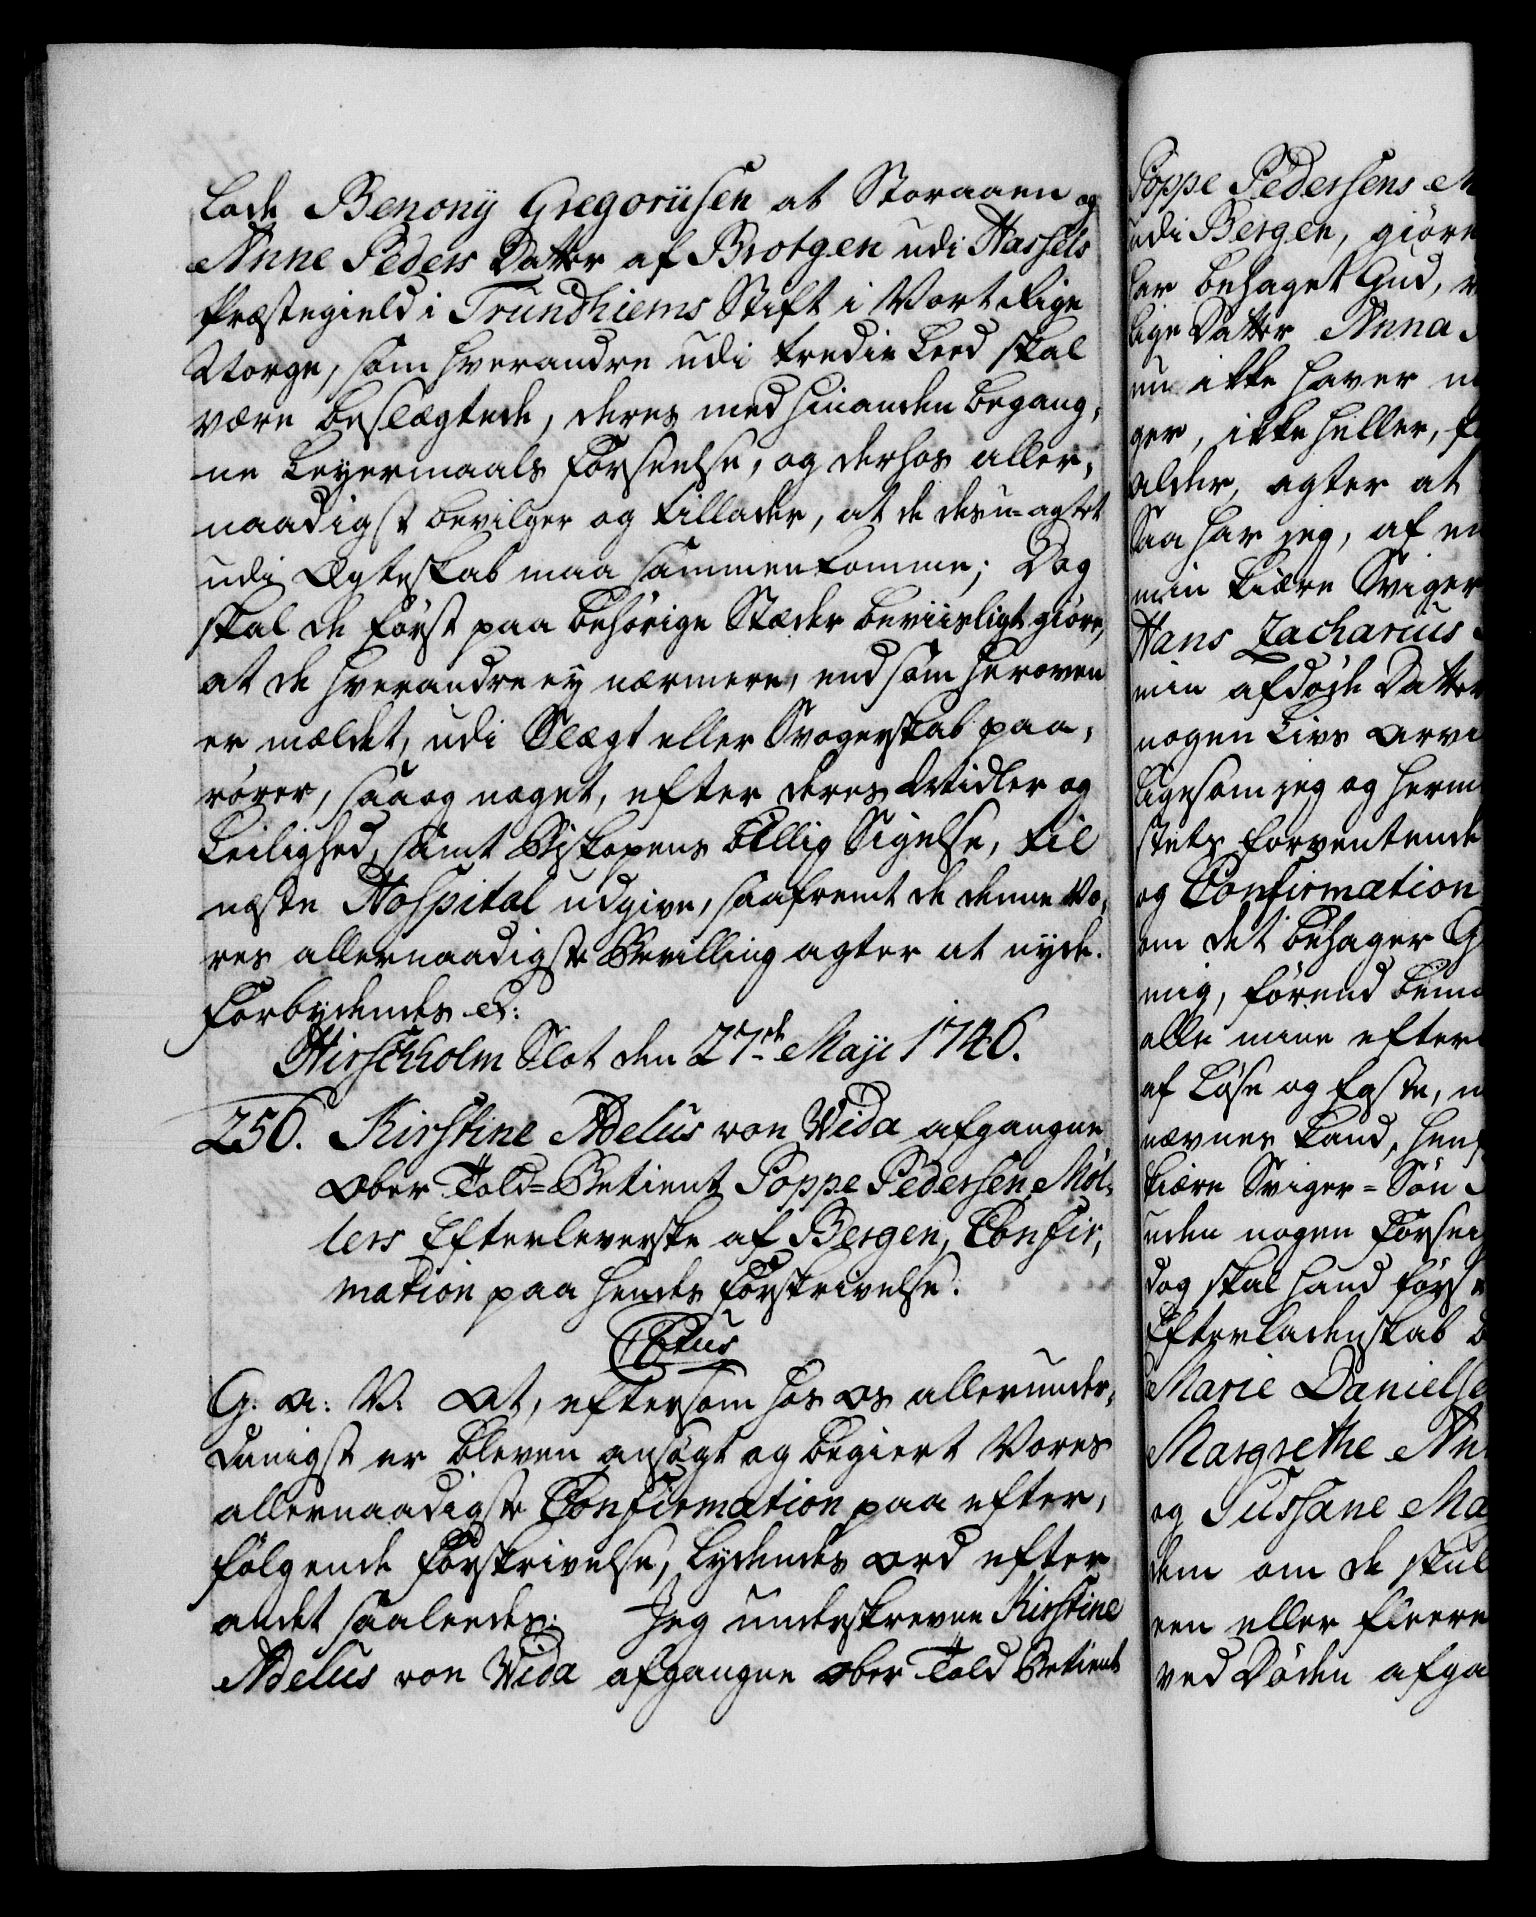 lade Benony Gregoriisen at Storaaen og
Anne Peders Datter af Brotgen udi Hassels
Præstegield i Trundhiems Stift i Vort Rige
Norge, som hverandre udi tredie Leed skal
være beslægtede, deres med hinanden begang,
ne Leyermaals Forseelse, og derhos aller,
naadigst bevilger og tillader, at de des u-agtet
udi Ægteskab maa sammenkomme; Dog
skal de først paa behörige Stæder beviisligt giöre,
at de hverandre ey nærmere, end som heroven
er mældet, udi Slægt eller Svogerskab paa,
rörer, saa og noget, efter deres Midler og
Leilighed, samt Biskopens billig Sigelse, til
næste Hospital udgive, saafremt de denne Vo,
res allernaadigste Bevilling agter at nyde.
Forbydendes &:
Hirschholm Slot den 27de Maji 1746.
256. Kirstine Adelus von Wida afgangne
Ober Told=Betient Poppe Pedersen Möl,
lers Efterleverske af Bergen, Confir,
mation paa hendes Forskrivelse.
C6tus
G: A: V: At, eftersom hos os allerunder,
danigst er bleven ansögt og begiert Vores
allernaadigste Confirmation paa efter,
fölgende Forskrivelse, lydendes Ord efter
andet saaledes: Jeg underskrevne Kirstine
Adelus von Wida afgangne Ober Told Betient
Poppe Pedersens M
udi Bergen, giöre
har behaget Gud,
lige Datter Anna
nu ikke haver
ger, ikke heller,
alder, agter at
Saa har jeg, af
min kiære Sviger
Hans Zacharius
min afdöde Datter
nogen Livs Arvi
ligesom jeg og herm
stets forventende
og Confirmation
om det behager G
mig, förend bem
alle mine efter
af Löse og Faste,
nævnes kand,
kiære Sviger=Sön
uden nogen Forsei
dog skal hand förs
Efterladenskab
Marie Danielse
Margrethe An
og Sussane Ma
dem om de skul
een eller fleere
ved Döden afga